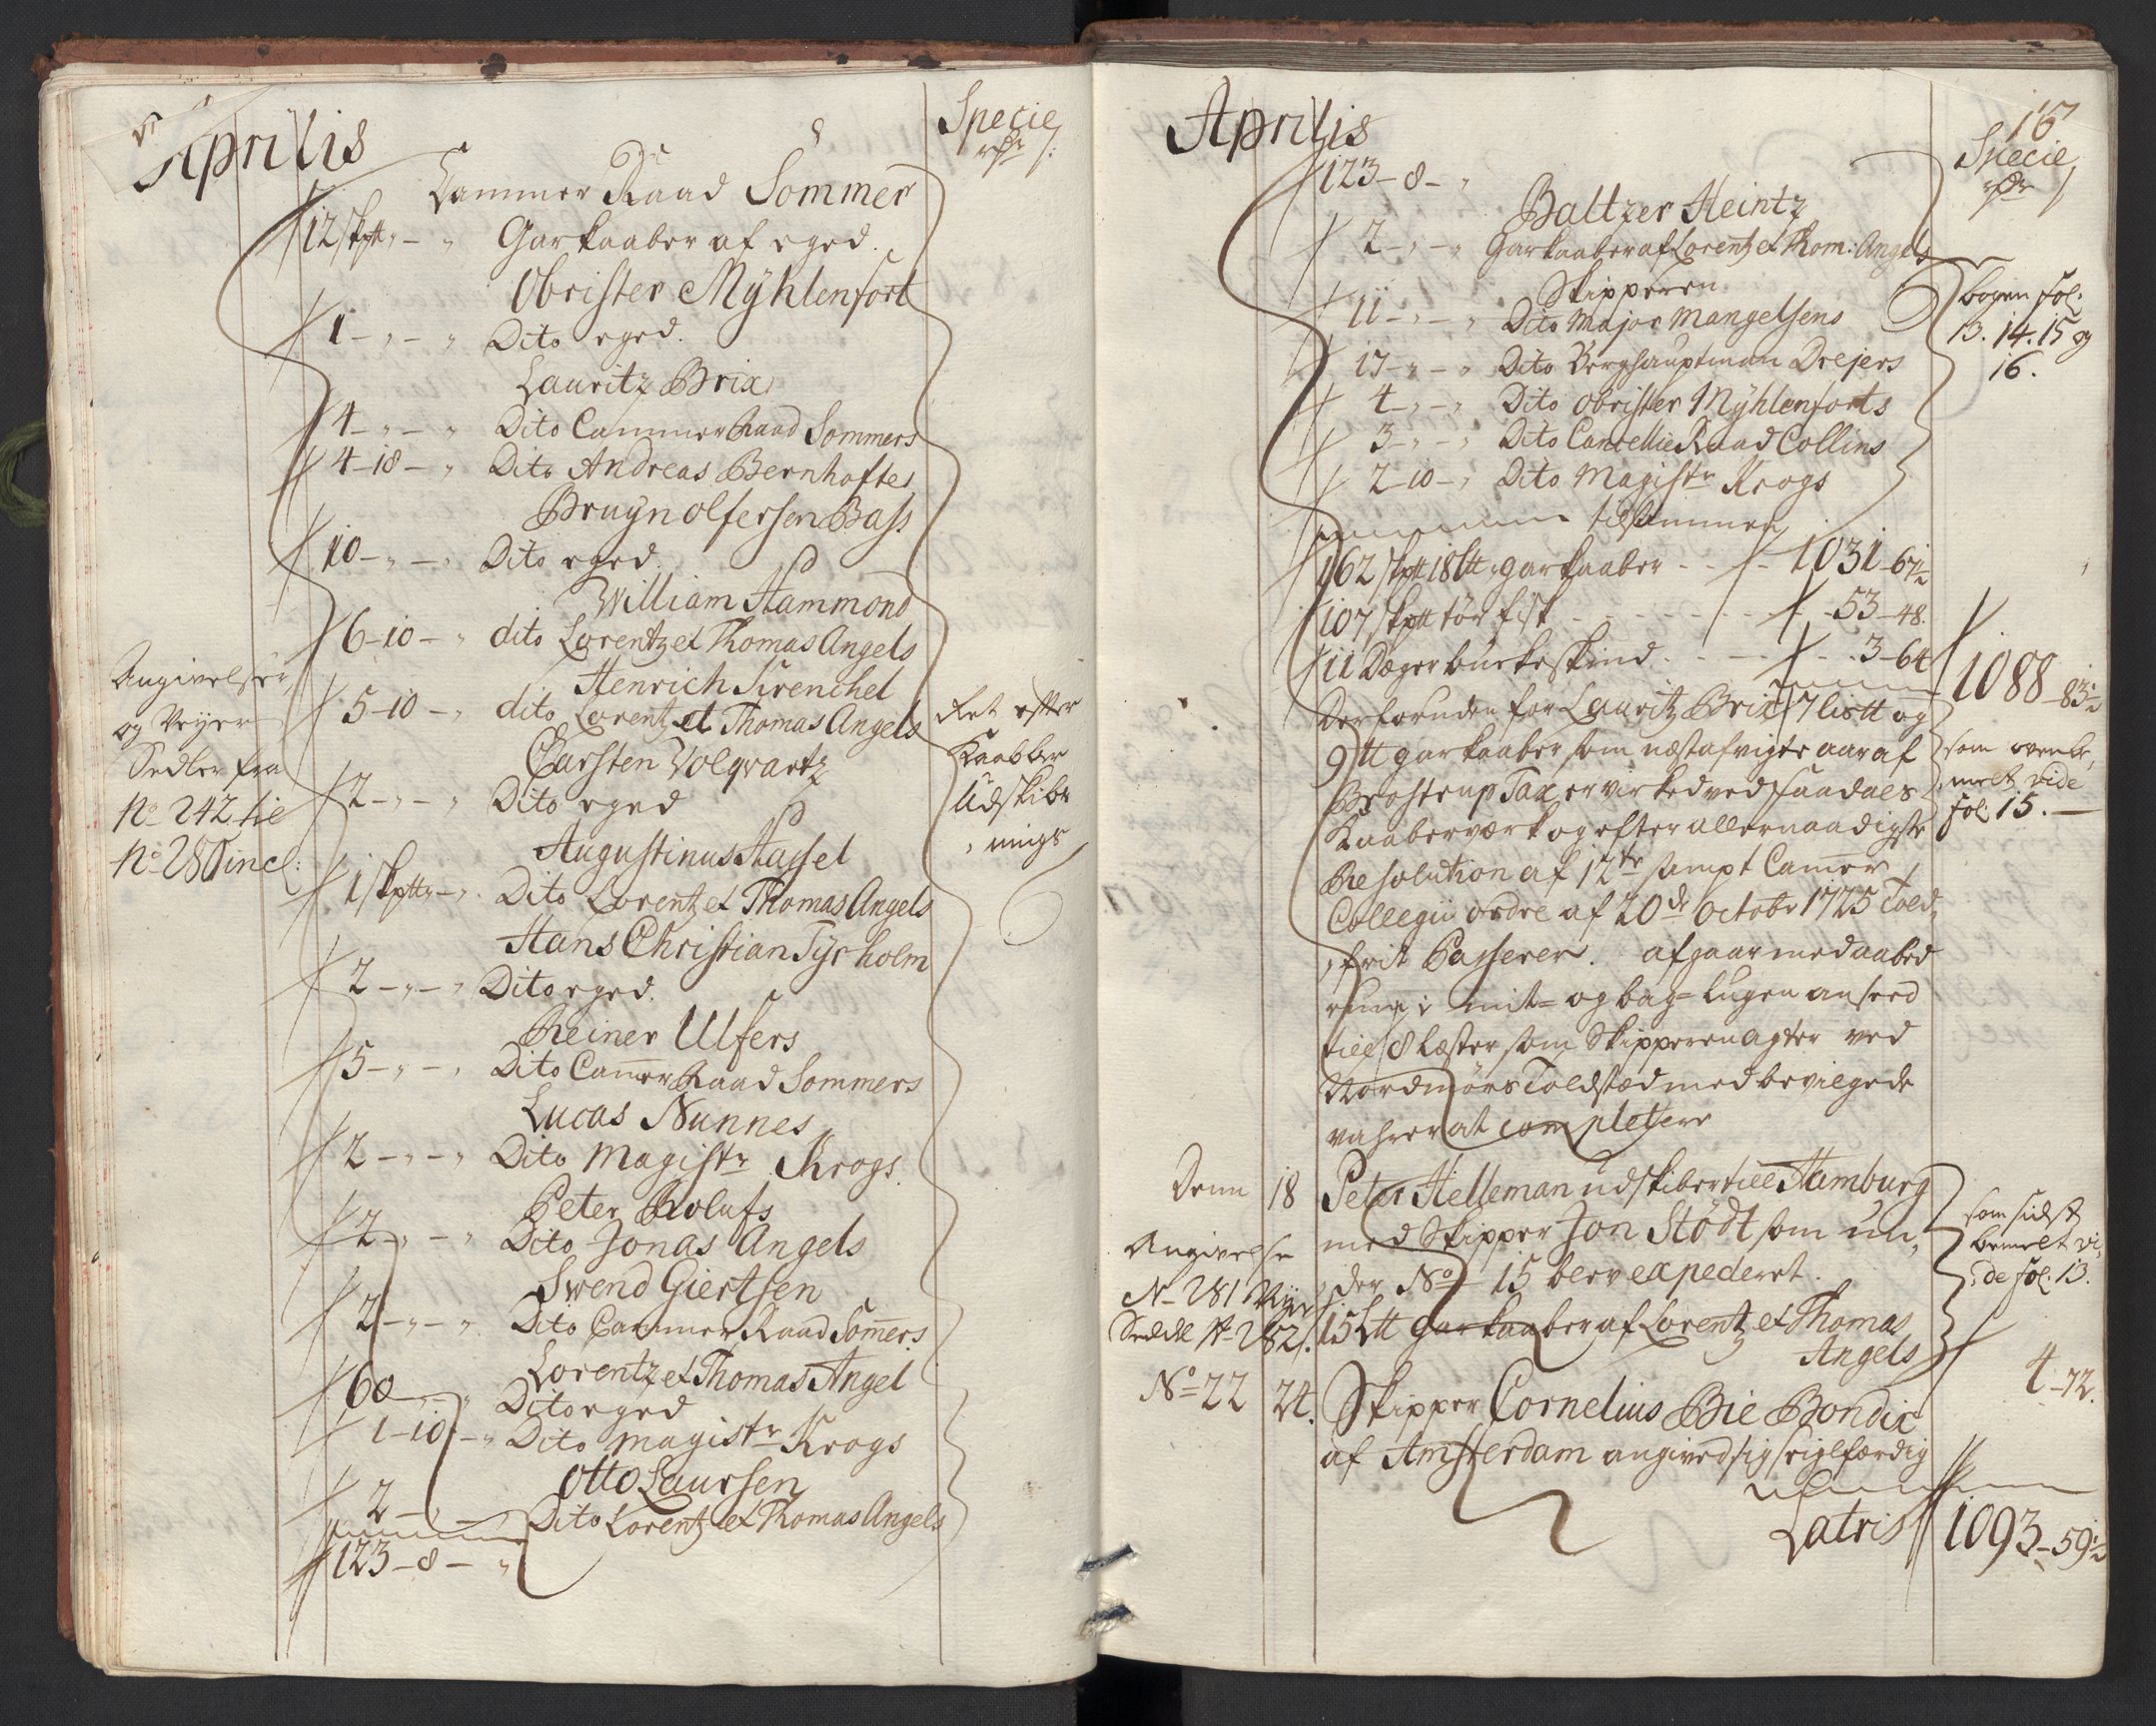 Aprilis
Specie
rdr
Cammer Raad Sommer
12 skptt „ – „ Garkaaber af eged.
Obrister Mÿhlenfort
1 – „ – „ Dito eged.
Lauritz Brix
4 – „ – „ Dito Cammer Raad Sommers
4 – 18 – „ Dito Andreas Bernhoftes
Bruyn Olfersen Bass
10 – „ – „ Dito eged
William Hammond
6 – 10 – „ dito Lorentz et Thomas Angels
Henrich Frenchel
5 – 10 – „ dito Lorentz et Thomas Angels
Carsten Volqvartz
2 – „ – „ Dito eged
Augustinus Hassel
1 skptt „ – „ Dito Lorentz et Thomas Angels
Hans Christian Tyrholm
2 – „ – „ Dito eged.
Reiner Ulfers
5 – „ – „ Dito Camer Raad Sommers
Lucas Nunnes
2 – „ – „ Dito Magistr Krogs.
Peter Rolufs
2 – „ – „ Dito Jonas Angels
Swend Giertsen
2 – „ – „ Dito Cammer Raad Somers.
Lorentz et Thomas Angel
60 – „ Dito eged
1 – 10 – „ Dito Magistr Krogs
Otto Laursen
2 – „ – Dito Lorentz et Thomas Angels
123 – 8 – „
Angivelser
og Veyer
Sedler fra
No 242 til
No 280 incl:
Ret efter
Kaabber
Udskib
nings
Aprilis
16
Specie
rdr
123 – 8 – „
Baltzer Heintz
2 – „ – „ Garkaaber af Lorentz et Thom: Angels
Skipperen
11 – „ – „ Dito Major Mangelsens
17 – „ – „ Dito Berghauptman Drejers
4 – „ – „ Dito Obrister Mÿhlenforts
3 – „ – „ Dito Cancellie Raad Collins
2 – 10 – „ Dito Magistr Krogs
bogen fol:
13. 14. 15 og
16.
tilsammen
162 skptt 18 ltt garkaaber - - 1031 – 67½
107 skptt tør fisk - - - - 53 – 48.
11 Deger buckeskind - - - 3 – 64
1088 – 83½
Derforuden for Lauritz Brix 7 listt og
9 tt garkaaber som nestafvigte aar af
Brostrup Tax er virked ved Saadals
Kaaberværk og efter allernaadigste
Resolution af 12te sampt Camer
Collegii ordre af 20de octobr 1725 Told
frit Passerer. afgaar med aabed
rum i mit= og bag= lugen anseed
till 8 læster som Skipperen agter ved
Nordmørs Toldsted med bevilgede
vahrer at completere
som ovenbe
melt vide
fol: 15. –
Denn 18 Peter Helleman udskiber till Hamburg
med Skipper Jon Stödt som un
der No 15 blev expederet.
15 Ltt garkaaber af Lorentz et Thomas
Angels
4 – 72.
Angivelse
No 281 Veyer
Seddel No 282.
som sidst
bemelt vi
de fol: 13.
No 22 24. Skipper Cornelius Bie Bondix
af Amsterdam angived sig seiglfærdig
Latris 1093 – 59½